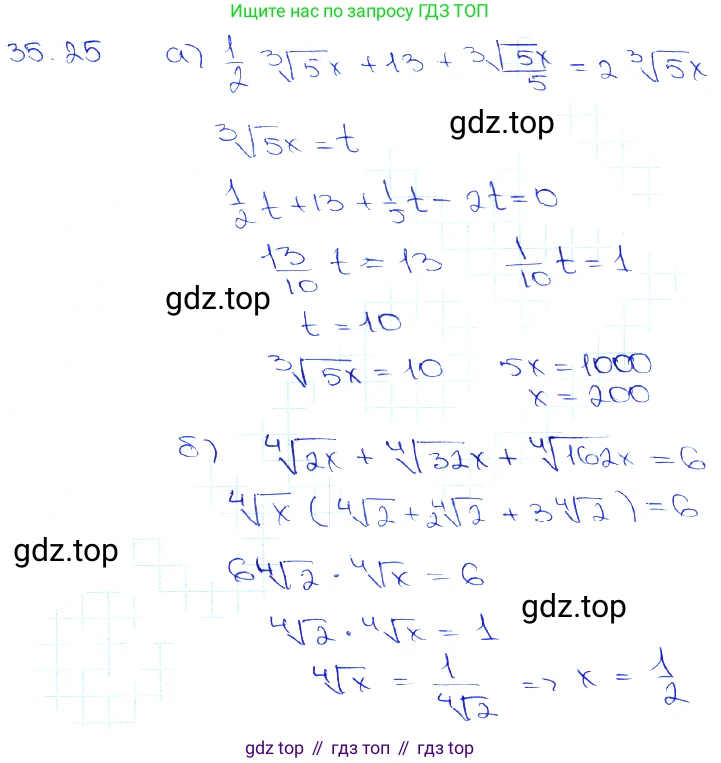 Ищите нас по запросу ГДЗ ТОП
35.25 а) 1/2 ∛5x + 13 + ∛5x/5 = 2 ∛5x
gdz.top
∛5x = t
1/2 t + 13 + 1/5 t - 2t = 0
13/10 t = 13 1/10 t = 1
gdz.top
t = 10
∛5x = 10 5x = 1000
x = 200
б) ∜2x + ∜32x + ∜162x = 6
∜x (∜2 + 2∜2 + 3∜2) = 6
gdz.top
6∜2 · ∜x = 6
gdz.top
∜2 · ∜x = 1
∜x = 1/∜2 => x = 1/2
gdz top // гдз топ // gdz top